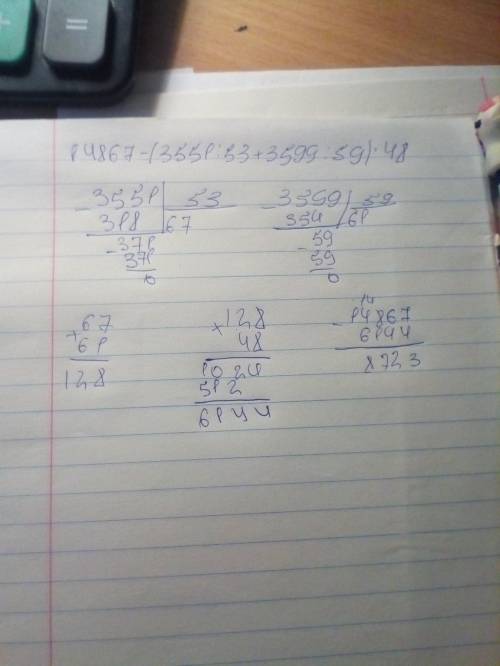 14867-(3551:53+3599:59)·48
-3551 53
318 67
-371
371
0
-3599 59
354 61
-59
59
0
+67
61
128
×128
48
1024
512
6144
14
-14867
6144
8723
=